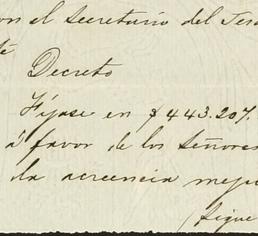 on el Secretario del Tes
té
Decreto
Fíjase en $443.207.
á favor de los Señores
da acreencia mej
(Sigue